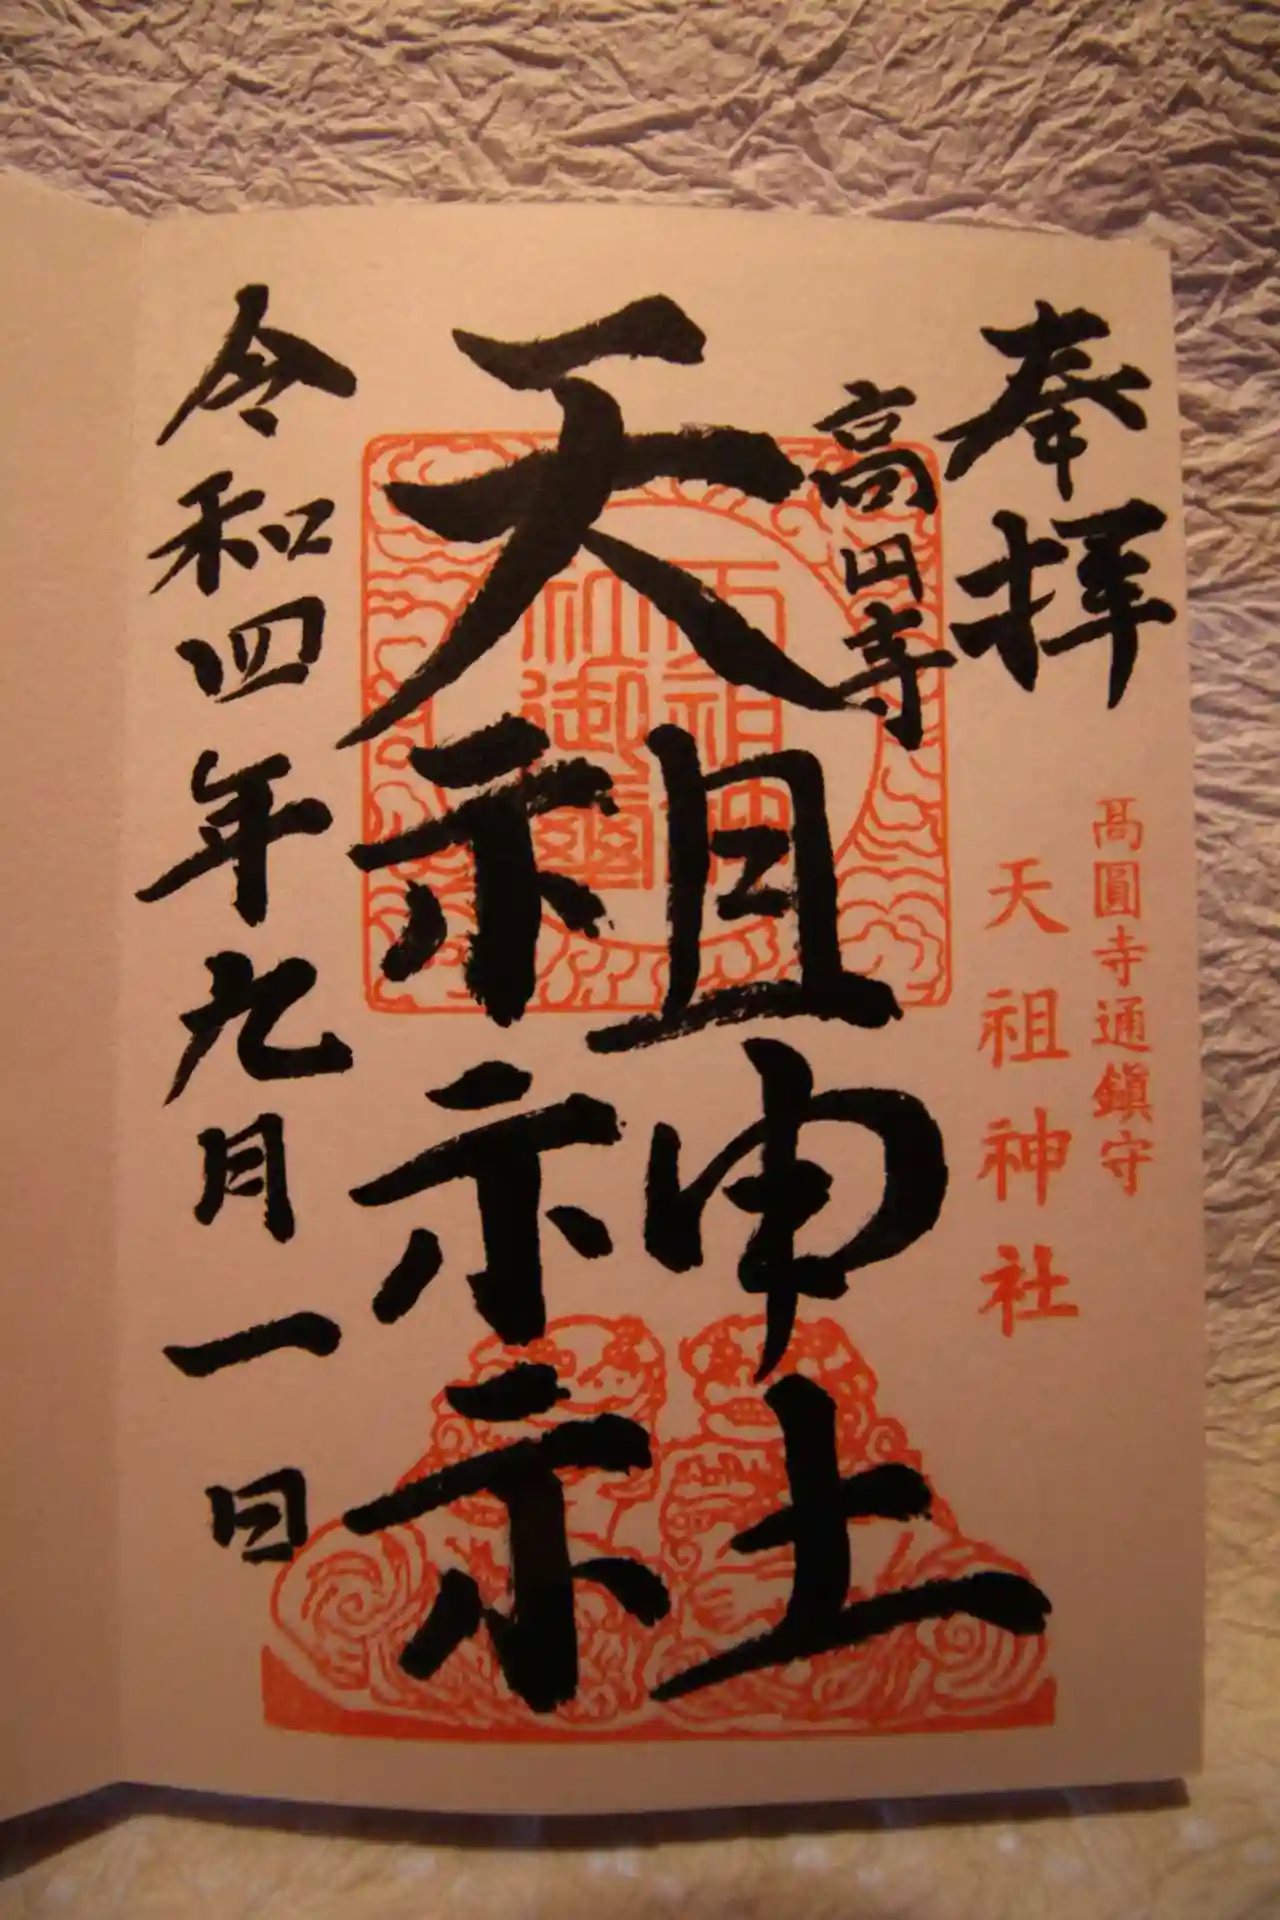 奉拝
髙圓寺通鎭守
天祖神社
高円寺
天祖神社
天祖神
社御璽
令和四年九月一日